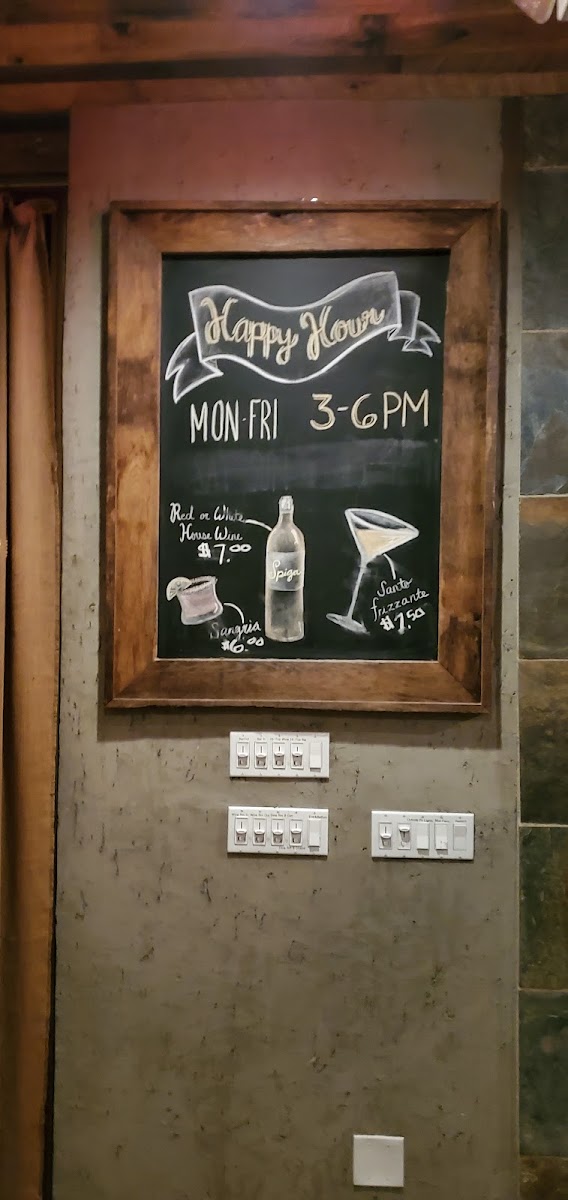 Happy Hour
MON-FRI 3-6PM
Red or White
House Wine
$7.00
Spiga
Santo
frizzante
$7.50
Sangria
$6.00